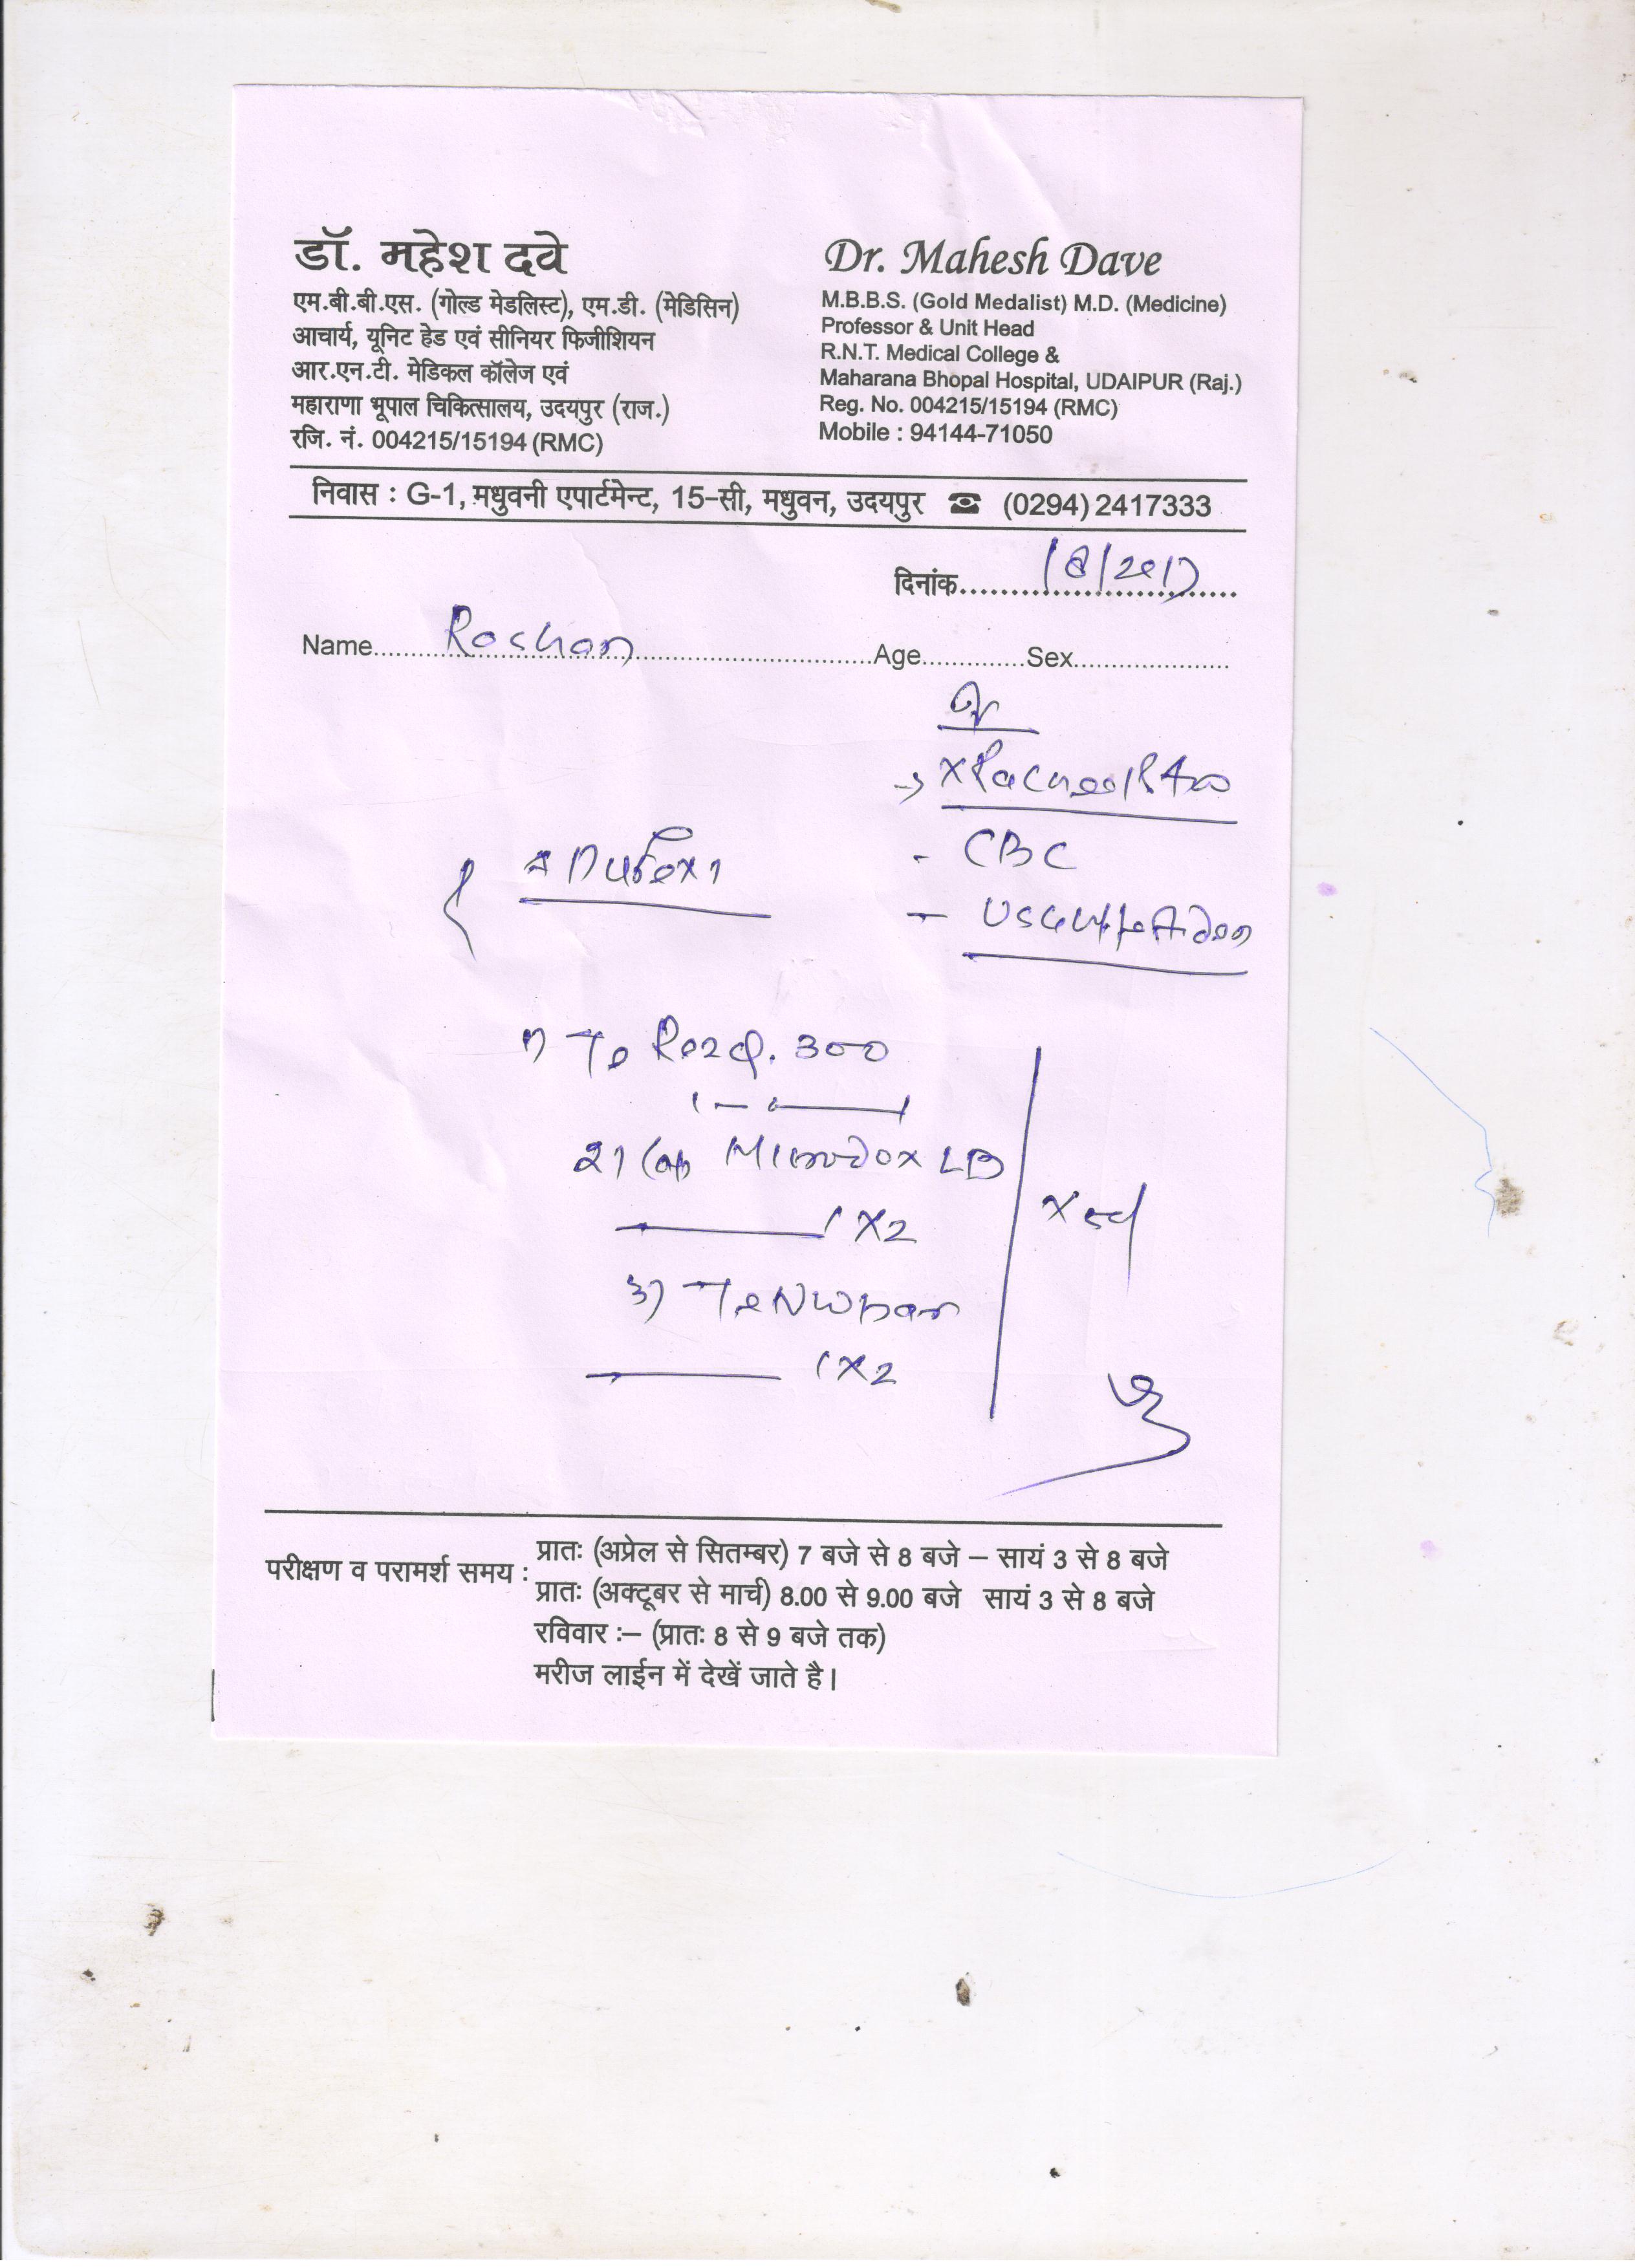 डॉ. महेश दवे
एम.बी.बी.एस. (गोल्ड मेडलिस्ट), एम.डी. (मेडिसिन)
आचार्य, यूनिट हेड एवं सीनियर फिजीशियन
आर.एन.टी. मेडिकल कॉलेज एवं
महाराणा भूपाल चिकित्सालय, उदयपुर (राज.)
रजि. नं. 004215/15194 (RMC)
Dr. Mahesh Dave
M.B.B.S. (Gold Medalist) M.D. (Medicine)
Professor & Unit Head
R.N.T. Medical College &
Maharana Bhopal Hospital, UDAIPUR (Raj.)
Reg. No. 004215/15194 (RMC)
Mobile : 94144-71050
निवास : G-1, मधुवनी एपार्टमेन्ट, 15-सी, मधुवन, उदयपुर ☎ (0294) 2417333
दिनांक 18/2017
Name Roshan Age Sex
- CBC
300
2) Cap Microdox LB
1 X 2
3)
1 X 2
X 5d
परीक्षण व परामर्श समय : प्रातः (अप्रेल से सितम्बर) 7 बजे से 8 बजे – सायं 3 से 8 बजे
प्रातः (अक्टूबर से मार्च) 8.00 से 9.00 बजे सायं 3 से 8 बजे
रविवार :– (प्रातः 8 से 9 बजे तक)
मरीज लाईन में देखें जाते है।